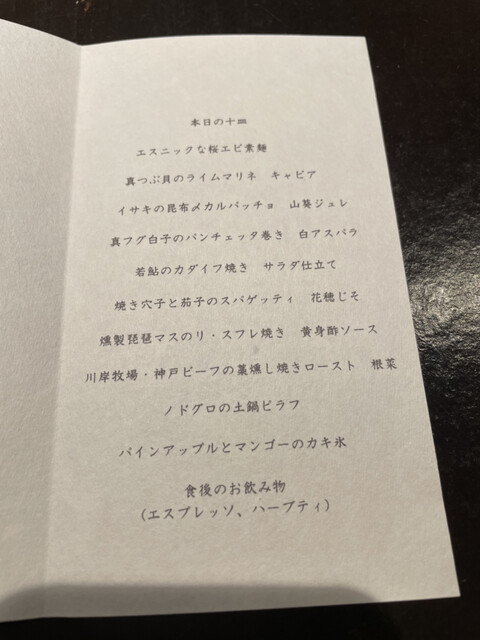 本日の十皿
エスニックな桜エビ素麺
真つぶ貝のライムマリネ　キャビア
イサキの昆布〆カルパッチョ　山葵ジュレ
真フグ白子のパンチェッタ巻き　白アスパラ
若鮎のカダイフ焼き　サラダ仕立て
焼き穴子と茄子のスパゲッティ　花穂じそ
燻製琵琶マスのリ・スフレ焼き　黄身酢ソース
川岸牧場・神戸ビーフの藁燻し焼きロースト　根菜
ノドグロの土鍋ピラフ
パインアップルとマンゴーのカキ氷
食後のお飲み物
（エスプレッソ、ハーブティ）